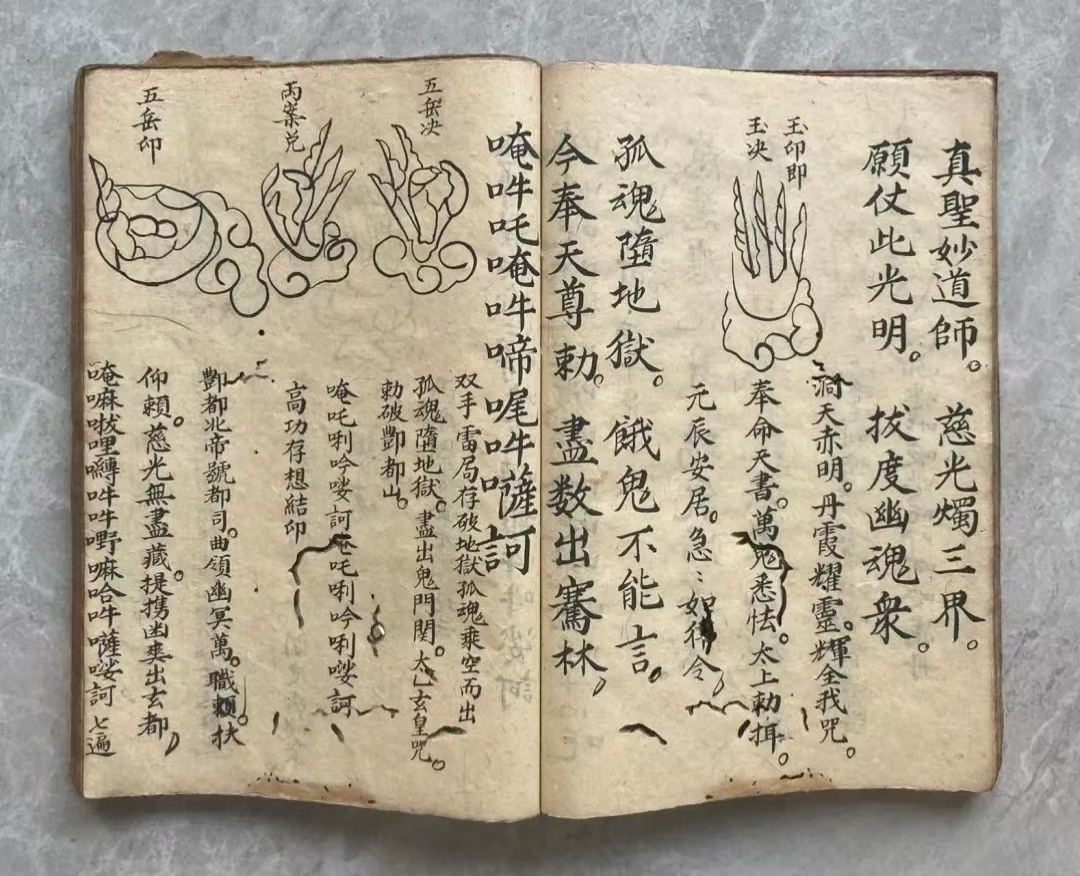 真聖妙道師。慈光燭三界。
願仗此光明。拔度幽魂衆。
玉印即
玉决
洞天赤明。丹霞耀靈。輝全我咒。
奉命天書。萬鬼悉怯。太上勅揖。
元辰安居。急〻如律令,
孤魂墮地獄。餓鬼不能言。
今奉天尊勅。盡数出騫林,
唵吽吒唵吽啼㖞吽吽㗶訶
五岳决
丙案兊
五岳印
双手雷局存破地獄孤魂乘空而出
孤魂墮地獄。盡出鬼門関。太乙玄皇咒。
勅破酆都山。
唵吒唎吟㗶訶唵吒唎吟唎㗶訶
高功存想結印
酆都北帝號都司。曲領幽冥萬。職頼。扶
仰賴。慈光無盡藏。提携幽爽出玄都,
唵嘛㘄哩嚩吽吽嘢嘛哈吽㗶㗶訶 七遍